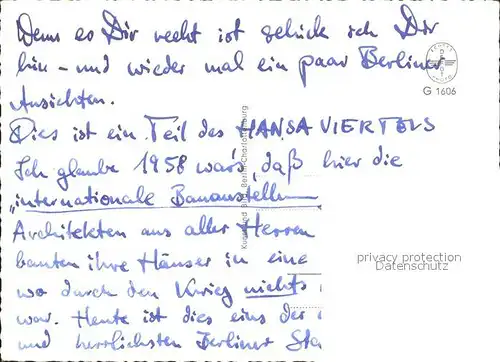 Wenn es Dir recht ist schicke ich Dir
hin - und wieder mal ein paar Berliner
Ansichten.
Dies ist ein Teil des HANSA VIERTELS
Ich glaube 1958 war's, daß hier die
"internationale Bauausstellun
Architekten aus aller Herren
bauten ihre Häuser in eine
wo durch den Krieg nichts
war. Heute ist dies eins der
und herrlichsten Berliner Sta
G 1606
Kunst und Bild, Berlin-Charlottenburg
privacy protection
Datenschutz